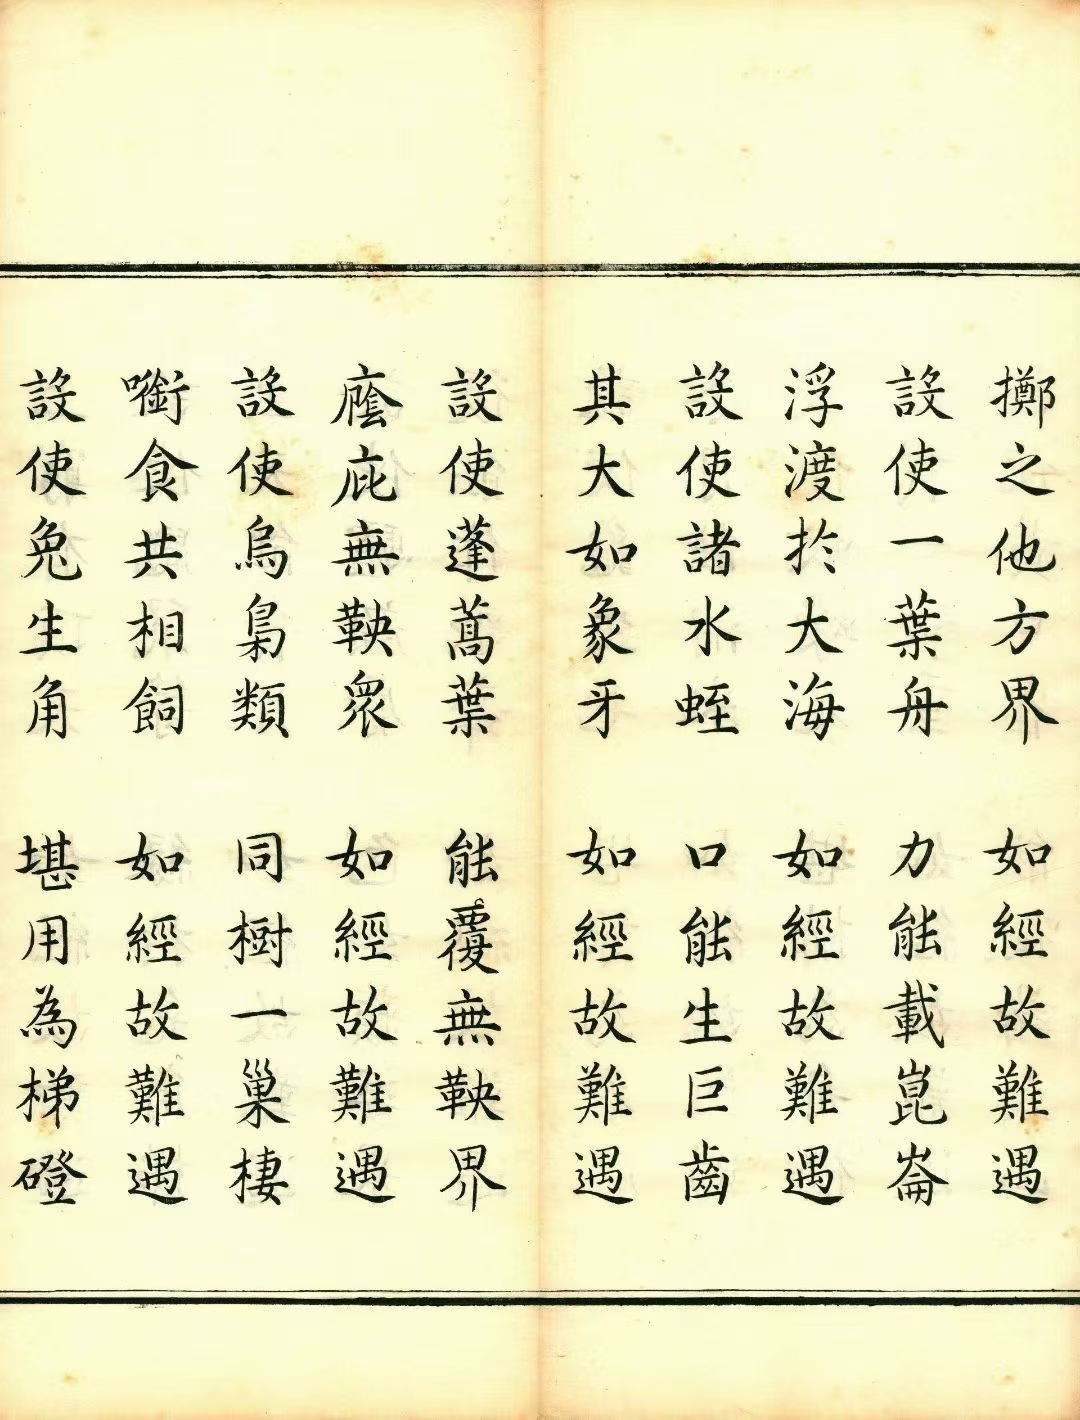 擲之他方界　如經故難遇
設使一葉舟　力能載崑崙
浮渡於大海　如經故難遇
設使諸水蛭　口能生巨齒
其大如象牙　如經故難遇
設使蓬蒿葉　能覆無鞅界
廕庇無鞅衆　如經故難遇
設使烏梟類　同樹一巢棲
嚼食共相飼　如經故難遇
設使兔生角　堪用為梯磴